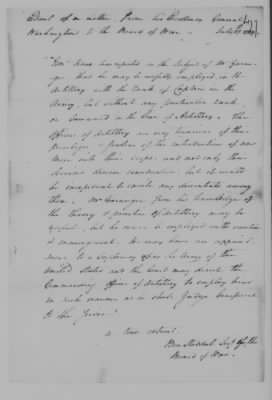 Extract of a letter, from his Excellency General
Washington to the Board of War. July
"Gen. Knox has reported in the subject of Mr Garan-
ger that he may be usefully employed in the
Artillery with the rank of Captain in the
Army, but without any particular rank
or command in the line of Artillery. The
Officers of Artillery are very tenacious of their
Privileges & jealous of the introduction of new
Men into their corps, and not only their
Services deserve consideration, but it would
be exceptional to excite any discontents among
them. Mr Garanger from his knowledge of
the Theory & practice of Artillery may be
useful, but he must be employed with caution
& management. He may have an appoint-
ment to a Captaincy in the Army of the
United States and the board may direct the
Commanding Officer of Artillery to employ him
in such manner as he shall judge beneficial
to the Service."
a true extract.
Ben Stoddert Secy of the
Board of War.